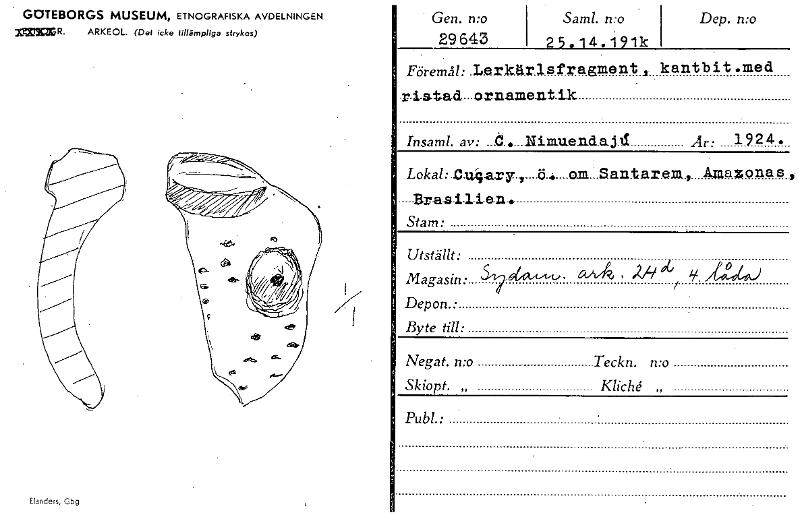 GÖTEBORGS MUSEUM, ETNOGRAFISKA AVDELNINGEN
GR. ARKEOL. (Det icke tillämpliga strykas)
1/1
Elanders, Gbg
Gen. n:o Saml. n:o Dep. n:o
29643 25.14.191k
Föremål: Lerkärlsfragment, kantbit.med
ristad ornamentik
Insaml. av: C. Nimuendajú År: 1924.
Lokal: Cuçary, ö. om Santarem, Amazonas,
Brasilien.
Stam:
Utställt:
Magasin: Sydam. ark. 24d, 4 låda
Depon.:
Byte till:
Negat. n:o Teckn. n:o
Skiopt. „ Kliché „
Publ.: